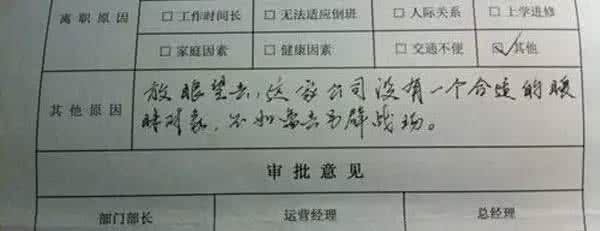 离职原因 □ 工作时间长 □ 无法适应倒班 □ 人际关系 □ 上学进修
□ 家庭因素 □ 健康因素 □ 交通不便 ☑ 其他
其他原因
放眼望去,这家公司没有一个合适的暧
昧对象,不如离去另辟战场。
审批意见
部门部长 运营经理 总经理